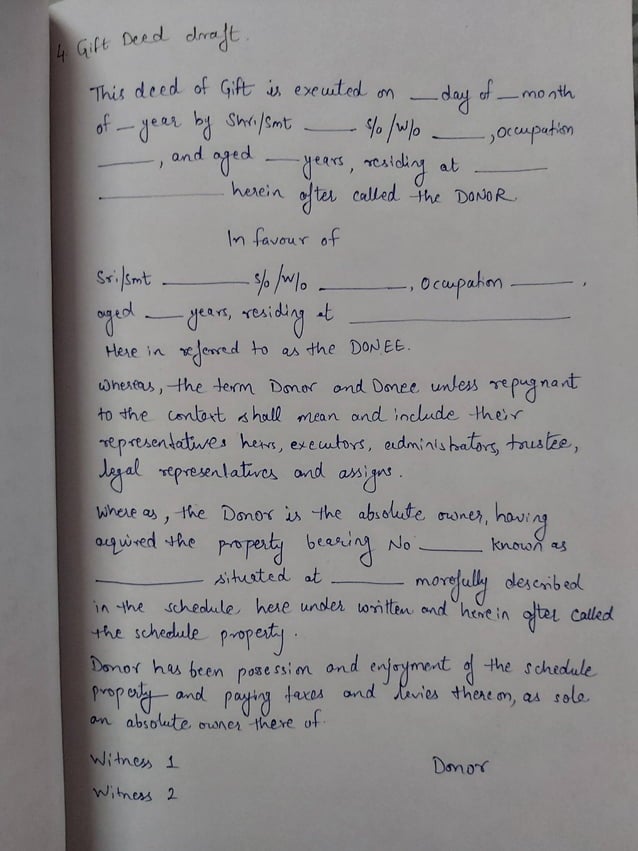 4. Gift Deed draft.
This deed of Gift is executed on __ day of __ month
of __ year by Shri/Smt ____ s/o /w/o ____, occupation
____, and aged ___ years, residing at ____
________ herein after called the DONOR.
In favour of
Sri./smt ______ s/o /w/o ______, Occupation ____,
aged ___ years, residing at ____________
Here in referred to as the DONEE.
Whereas, the term Donor and Donee unless repugnant
to the context shall mean and include their
representatives heirs, executors, administrators, trustee,
legal representatives and assigns.
Where as, the Donor is the absolute owner, having
acquired the property bearing No ____ known as
________ situated at _____ morefully described
in the schedule here under written and here in after called
the schedule property.
Donor has been posession and enjoyment of the schedule
property and paying taxes and levies there on, as sole
an absolute owner there of.
Witness 1 Donor
Witness 2